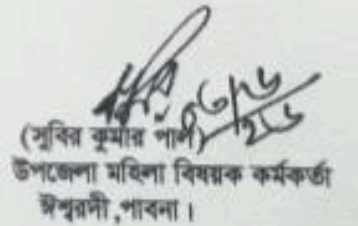 (সুবির কুমার পাল)
উপজেলা মহিলা বিষয়ক কর্মকর্তা
ঈশ্বরদী ,পাবনা।